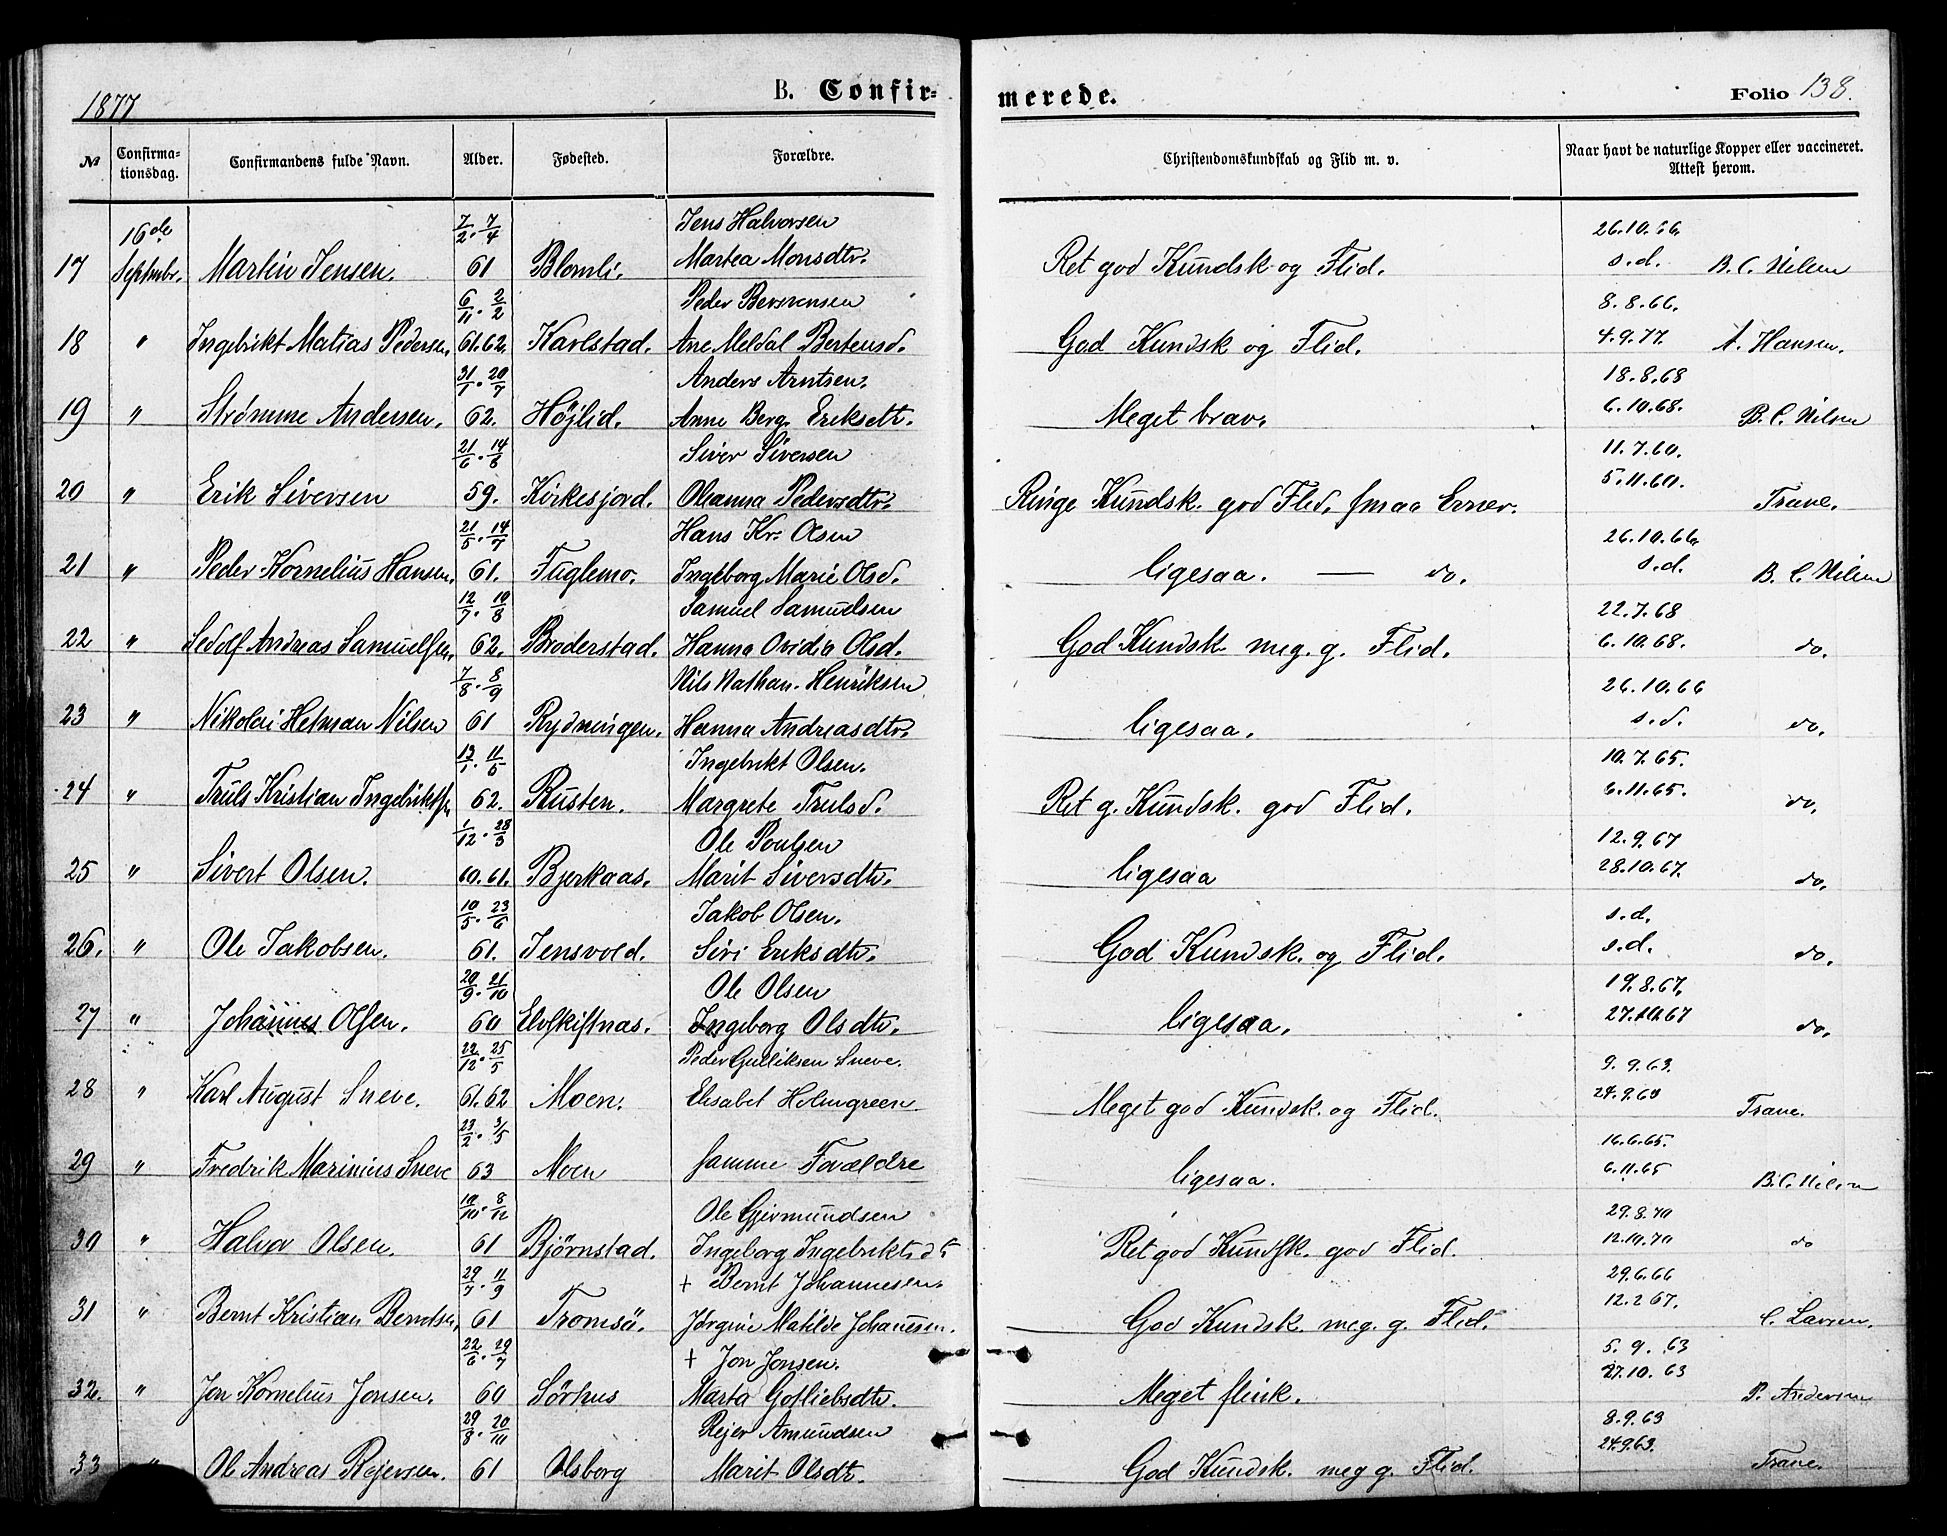 1877 B. Confir-merede. Folio 138.
№ Confirma-tionsdag. Confirmandens fulde Navn. Alder. Fødested. Forældre. Christendomskundskab og Flid m. v. Naar havt de naturlige Kopper eller vaccineret. Attest herom.
16de 7/2. 7/4 Jens Halvorsen 26.10.66.
17 Septmbr. Martin Jensen. 61 Blomli. Martea Monsdtr. Ret god Kundsk. og Flid. s.d. B. C. Nilsen
6/11. 2/2 Peder Bersvensen 8.8.66.
18 " Ingebrikt Matias Pedersen, 61.62. Karlstad. Ane Meldal Bertensd. God Kundsk og Flid. 4.9.77. A. Hansen.
31/1. 20/7 Anders Arntsen. 18.8.68
19 " Strömme Andersen. 62. Höjlid. Anne Berg. Eriksdtr. Meget brav. 6.10.68. B. C. Nilsen
21/6. 14/8 Siver Siversen 11.7.60.
20 " Erik Siversen 59. Kirkesjord. Oleanna Pedersdtr. Ringe Kundsk. god Flid, smaa Evner. 5.11.60. Trane.
21/5. 14/7 Hans Kr. Olsen 26.10.66,
21 " Peder Kornelius Hansen, 61. Fuglemo. Ingeborg Marie Olsd. ligesaa. — do. s.d. B. C. Nilsen
12/7. 10/8 Samuel Samuelsen 22.7.68
22 " Sedolf Andreas Samuelsen, 62. Broderstad. Hanna Ovidia Olsd. God Kundsk. meg. g. Flid. 6.10.68. do.
7/8. 8/9 Nils Nathan. Henriksen 26.10.66
23 " Nikolai Herman Nilsen 61 Rydningen. Hanna Andreasdtr. ligesaa. s.d. do.
13/1. 11/5 Ingebrikt Olsen. 10.7.65.
24 " Truls Kristian Ingebriktsn 62. Rusten. Margrete Trulsd. Ret g. Kundsk. god Flid. 6.11.65. do.
1/12. 28/3 Ole Poulsen 12.9.67
25 " Sivert Olsen. 60.61. Bjerkaas. Marit Siversdtr. ligesaa 28.10.67. do.
10/5. 23/6 Jakob Olsen. s.d.
26. " Ole Jakobsen. 61. Jensvold. Siri Eriksdtr. God Kundsk. og Flid. s.d. do.
20/9. 21/10 Ole Olsen 19.8.67,
27 " Johannes Olsen. 60 Elvskiftnas. Ingeborg Olsdtr. ligesaa. 27.10.67 do.
22/12. 25/5 Peder Gulliksen Sneve. 9.9.63.
28 " Karl August Sneve. 61.62 Moen. Elisabet Holmgreen. Meget god Kundsk. og Flid. 24.9.63 Trane.
23/2. 3/5 16.6.65.
29 " Fredrik Marinius Sneve 63 Moen samme Forældre ligesaa. 6.11.65 B. C. Nilsen
10/10. 8/12 Ole Gjermundsen 29.8.70
30 " Halvor Olsen. 61 Björnstad. Ingeborg Ingebriktsdtr Ret god Kundsk. god Flid. 12.10.70 do
29/7. 11/9 + Bernt Johannesen. 29.6.66
31 " Bernt Kristian Berntsen, 61 Tromsö. Jörgine Matilde Johannesen. God Kundsk. meg. g. Flid. 12.2 67. C. Larsen.
22/6. 29/7 + Jon Jonsen. 5. 9. 63
32. " Jon Kornelius Jonsen. 60 Sörhus Marta Gotliebsdtr. Meget flink. 27.10. 63 P. Andersen
29/8. 20/10 Rejer Amundsen 8.9.63
33 " Ole Andreas Rejersen. 61 Olsborg Marit Olsdtr. God Kundsk. meg g. Flid. 24.9.63. Trane.